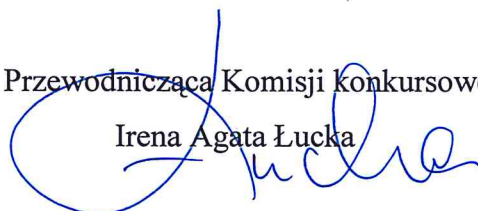 Przewodnicząca Komisji konkursowe
Irena Agata Łucka